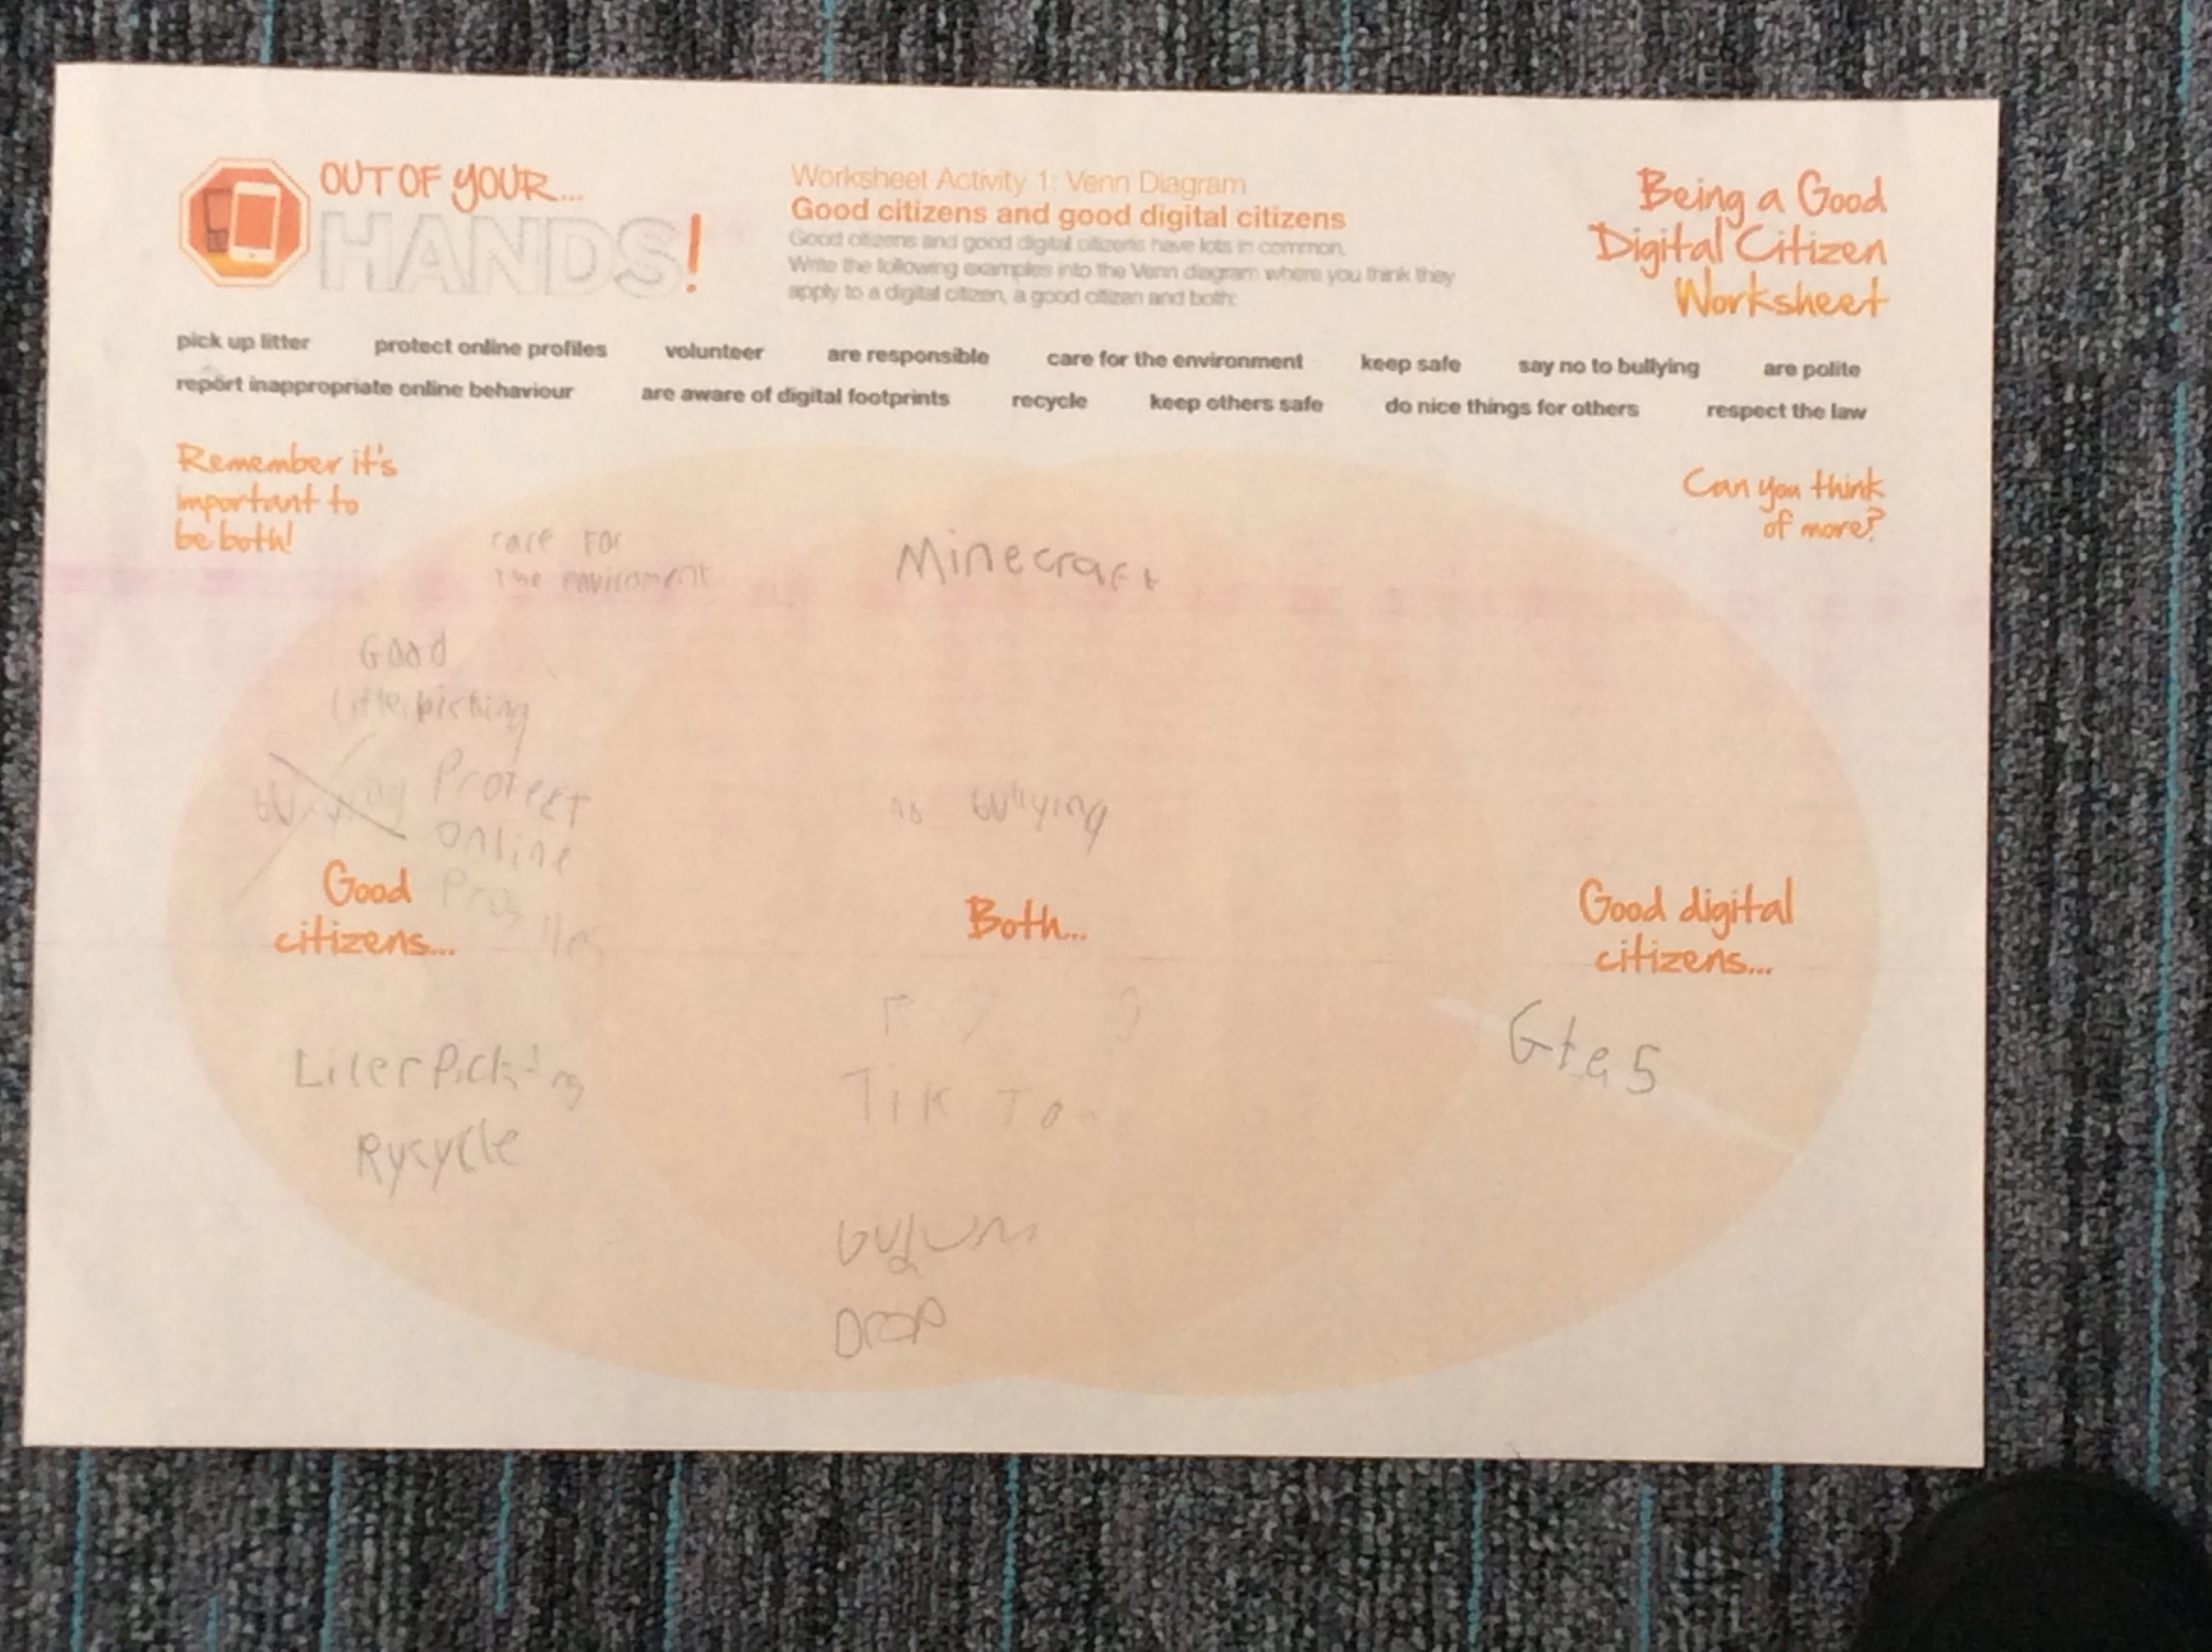 OUT OF YOUR...
HANDS!
Worksheet Activity 1: Venn Diagram
Good citizens and good digital citizens
Good citizens and good digital citizens have lots in common.
Write the following examples into the Venn diagram where you think they
apply to a digital citizen, a good citizen and both:
Being a Good
Digital Citizen
Worksheet
pick up litter protect online profiles volunteer are responsible care for the environment keep safe say no to bullying are polite
report inappropriate online behaviour are aware of digital footprints recycle keep others safe do nice things for others respect the law
Remember it's
important to
be both!
Can you think
of more?
care For
the enviroment
Minecraft
Good
litter picking
Protect
online
Profiles
no bullying
Good
citizens...
Both...
Good digital
citizens...
Liter Picking
Rycycle
Tik To
Gta 5
Drop